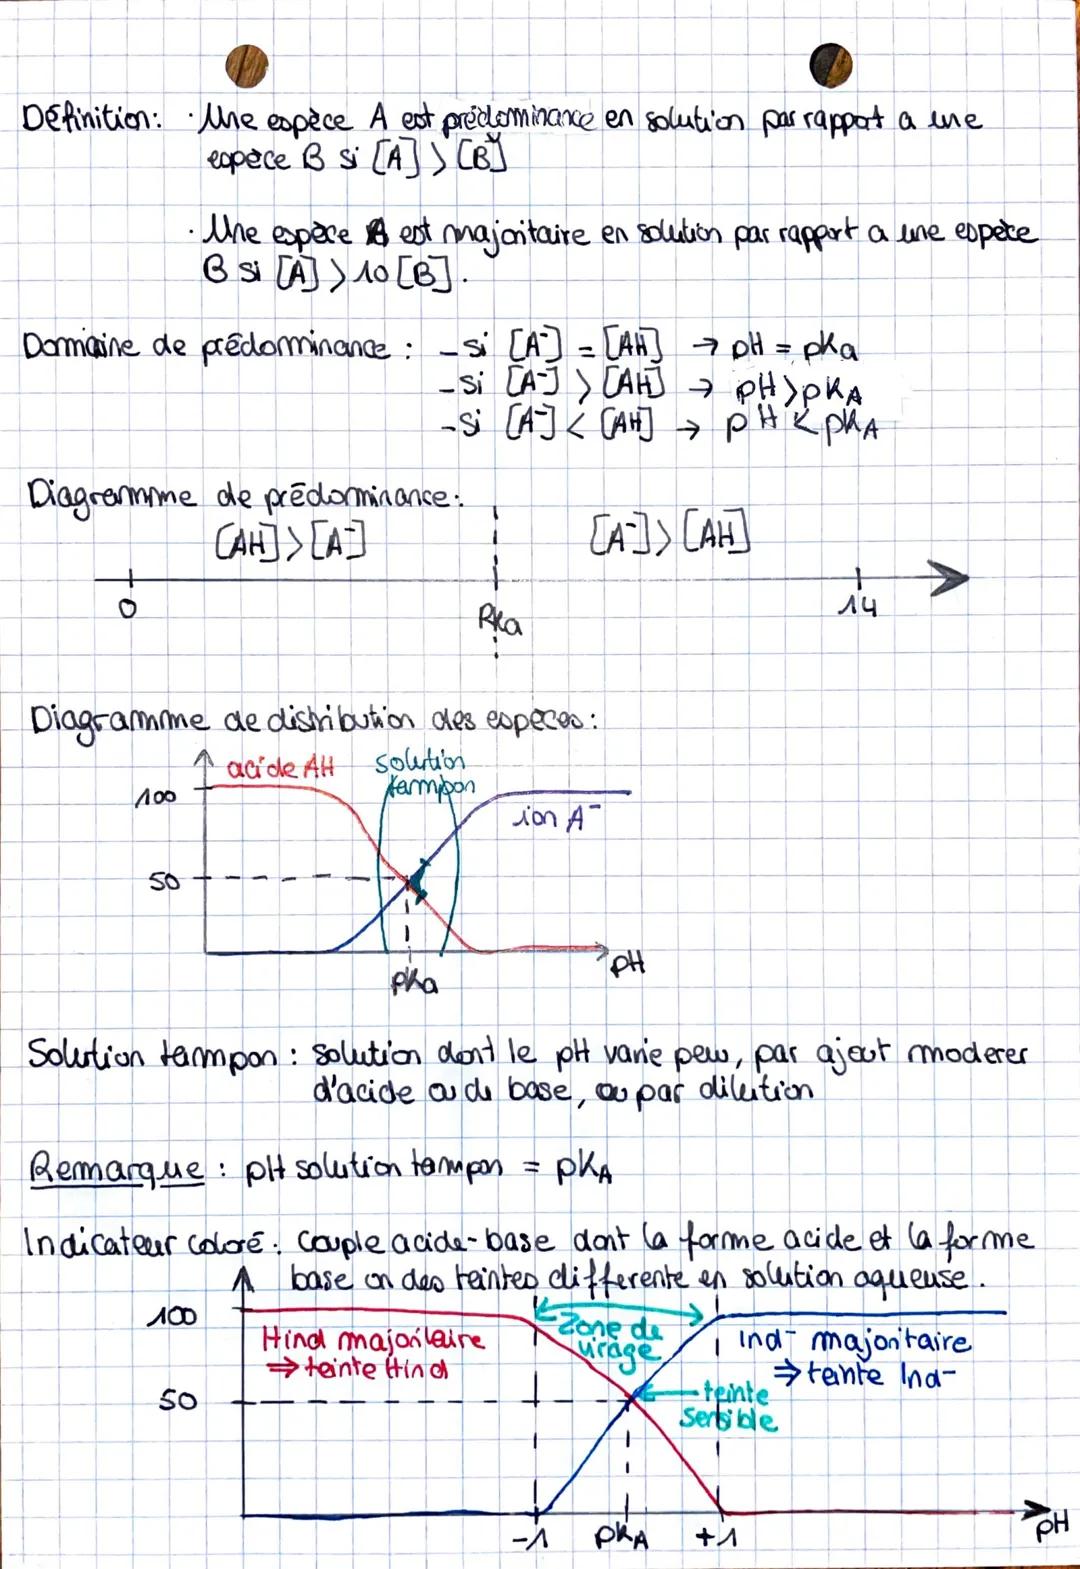 Définition: · Une espèce A est prédominance en solution par rapport a une
espèce B si [A] > [B]
· Une espèce A est majoritaire en solution par rapport a une espèce
B si [A] > 10 [B].
Domaine de prédominance : - si [A⁻] = [AH] → pH = pKa
- si [A⁻] > [AH] → pH > pKA
- si [A⁻] < [AH] → pH < pKA
Diagramme de prédominance:
[AH] > [A⁻] [A⁻] > [AH]
0 PKa 14
Diagramme de distribution des espèces:
acide AH solution
tampon
100
ion A⁻
50
pH
pKa
Solution tampon : solution dont le pH varie peu, par ajout moderer
d'acide ou de base, ou par dilution
Remarque : pH solution tampon = pKA
Indicateur coloré : Couple acide-base dont la forme acide et la forme
base on des teintes differente en solution aqueuse.
100
Zone de
virage
HInd majoritaire
⇒ teinte HInd
Ind⁻ majoritaire
⇒ teinte Ind-
50
teinte
sensible
-1 pKA +1 pH